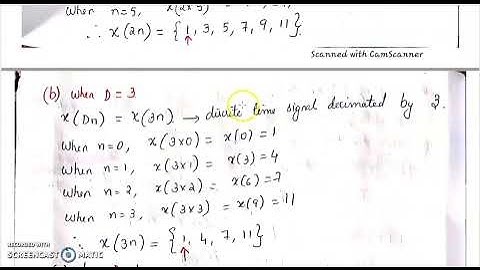 When n=5,
∴ x(2n) = {1, 3, 5, 7, 9, 11}.
Scanned with CamScanner
(b) When D = 3
x(Dn) = x(3n) → discrete time signal decimated by 3.
When n=0, x(3x0) = x(0) = 1
When n = 1, x(3x1) = x(3) = 4
When n = 2, x(3x2) = x(6) = 7
When n = 3, x(3x3) = x(9) = 11
∴ x(3n) = {1, 4, 7, 11}
RECORDED WITH
SCREENCAST MATIC